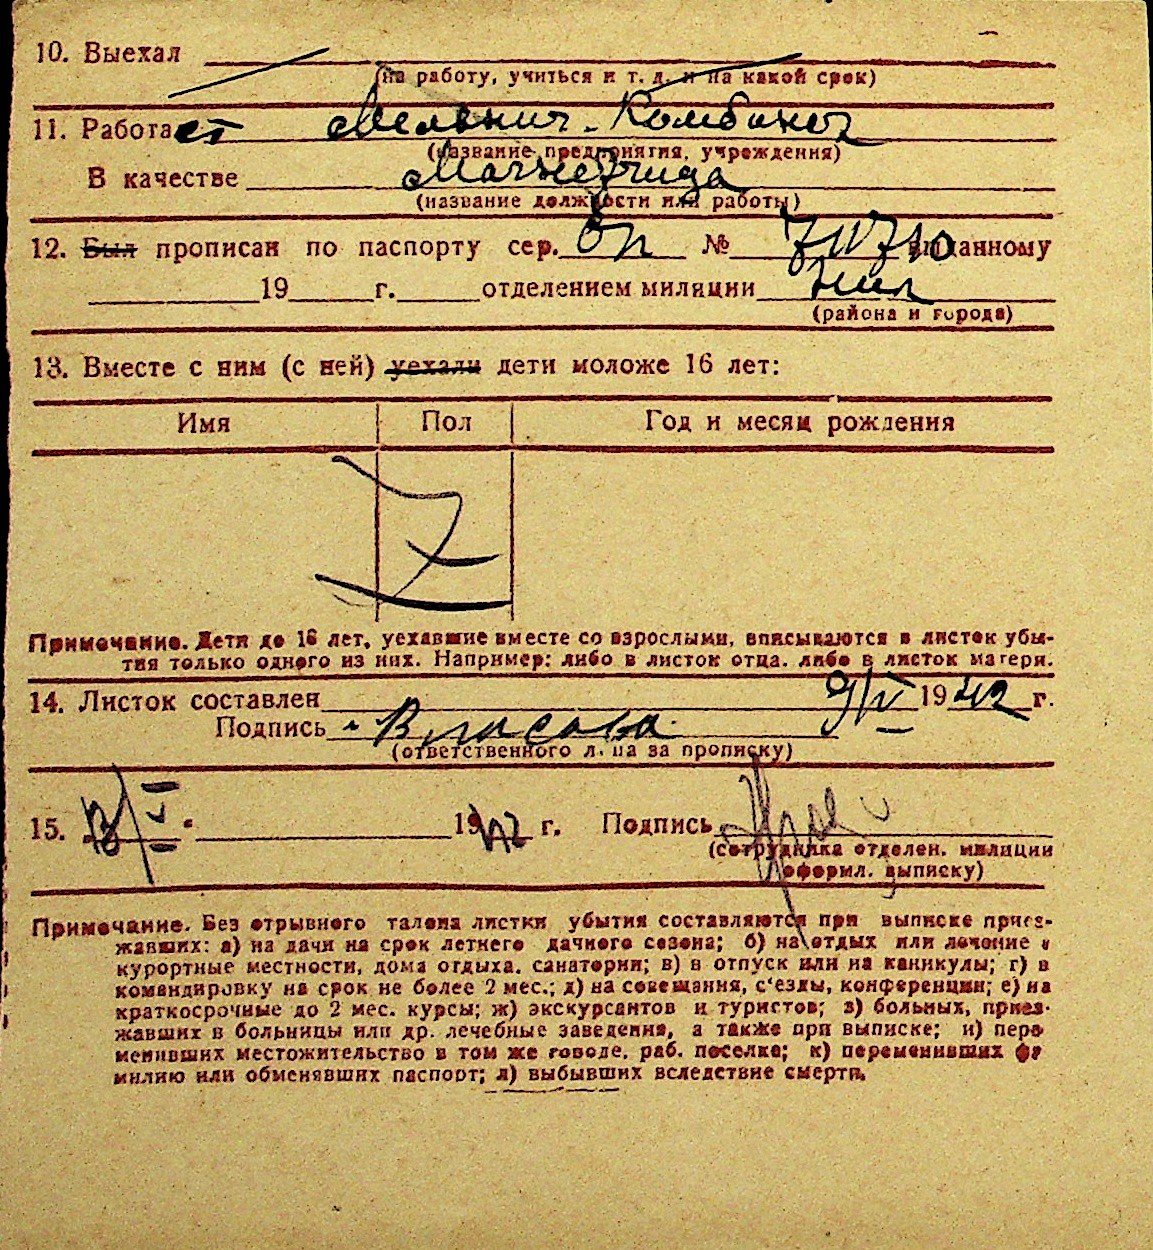 10. Выехал
(на работу, учиться и т. д. и на какой срок)
11. Работает Мельнич. Комбинат
(название предприятия, учреждения)
В качестве
(название должности или работы)
12. Был прописан по паспорту сер. № выданному
19 г. отделением милиции
(района и города)
13. Вместе с ним (с ней) уехали дети моложе 16 лет:
Имя Пол Год и месяц рождения
Z
Примечание. Дети до 16 лет, уехавшие вместе со взрослыми, вписываются в листок убы-
тия только одного из них. Например: либо в листок отца, либо в листок матери.
14. Листок составлен 9/V 1942 г.
Подпись Власова
(ответственного лица за прописку)
15. 13/V 1942 г. Подпись
(сотрудника отделен. милиции
оформл. выписку)
Примечание. Без отрывного талона листки убытия составляются при выписке приез-
жавших: а) на дачи на срок летнего дачного сезона; б) на отдых или лечение в
курортные местности, дома отдыха, санатории; в) в отпуск или на каникулы; г) в
командировку на срок не более 2 мес.; д) на совещания, с'езды, конференции; е) на
краткосрочные до 2 мес. курсы; ж) экскурсантов и туристов; з) больных, приез-
жавших в больницы или др. лечебные заведения, а также при выписке; и) пере
менивших местожительство в том же городе, раб. поселке; к) переменивших фа
милию или обменявших паспорт; л) выбывших вследствие смерти.